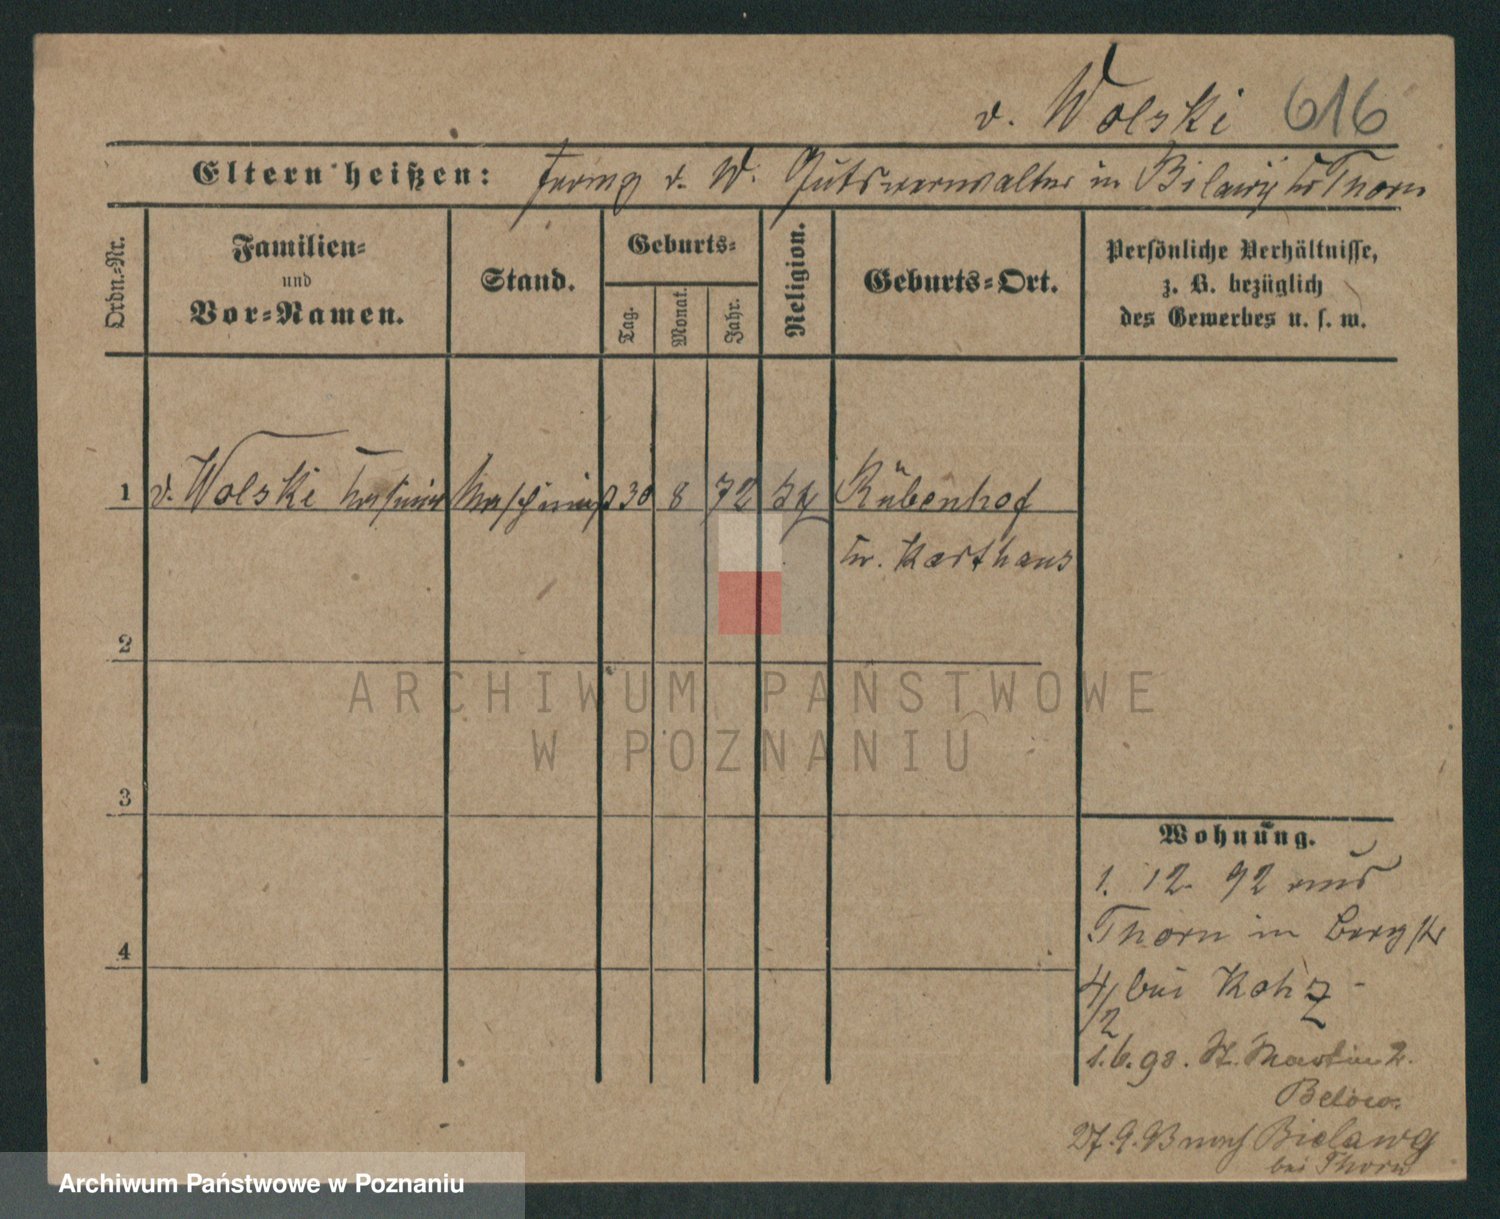 v. Wolski 616
Eltern heißen: v. W. Gutsverwalter in Bilawy Kr Thorn
Ordn.-Nr.
Familien-
und
Vor-Namen.
Stand.
Geburts-
Tag.
Monat.
Jahr.
Religion.
Geburts-Ort.
Persönliche Verhältnisse,
z. B. bezüglich
des Gewerbes u. s. w.
1 v. Wolski Maschinist 30 8 72 Rübenhof
Kr. Karthaus
2
3
4
Wohnung.
1. 12. 92 aus
Thorn in Bergstr
4/2 bei Kahz
1.6.93. St. Martin 2.
Below.
27.9.93 nach Bielawy
bei Thorn
ARCHIWUM PAŃSTWOWE
W POZNANIU
Archiwum Państwowe w Poznaniu